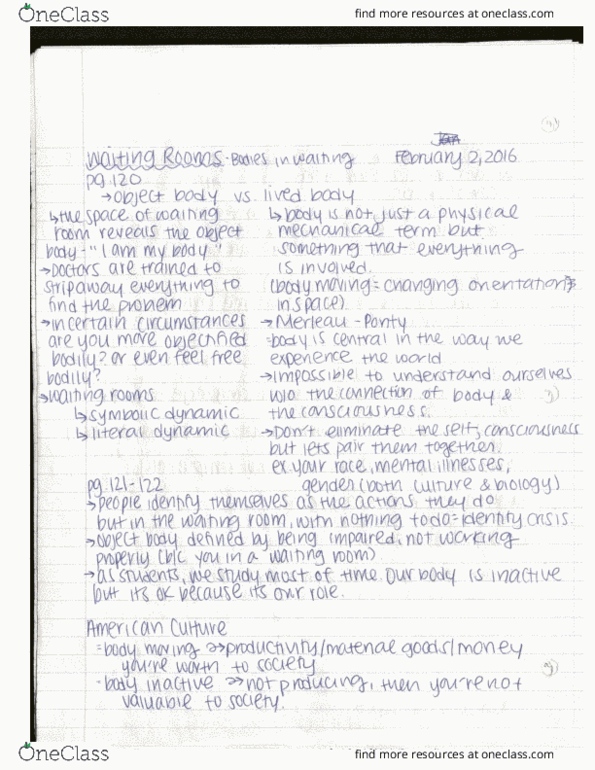 OneClass
find more resources at oneclass.com
Waiting Rooms - Bodies in waiting February 2, 2016
pg 120
→ object body vs. lived body
↳ the space of waiting
room reveals the object
body - "I am my body"
→ Doctors are trained to
strip away everything to
find the problem
→ in certain circumstances
are you more objectified
bodily? or even feel free
bodily?
→ waiting rooms
↳ symbolic dynamic
↳ literal dynamic
↳ body is not just a physical
mechanical term but
something that everything
is involved.
(body moving = changing orientation
in space)
→ Merleau-Ponty
= body is central in the way we
experience the world
→ impossible to understand ourselves
w/o the connection of body &
the consciousness.
→ Don't eliminate the self, consciousness
but lets pair them together.
ex. your race, mental illnesses,
gender (both culture & biology)
pg. 121-122
→ People identify themselves as the actions they do
but in the waiting room, with nothing to do = identity crisis.
→ object body defined by being impaired, not working
properly (b/c you in a waiting room)
→ as students, we study most of time. Our body is inactive
but its ok because its our role.
American Culture
= body moving → productivity/material goods/money
you're worth to society
- body inactive → not producing, then you're not
valuable to society.
OneClass
find more resources at oneclass.com